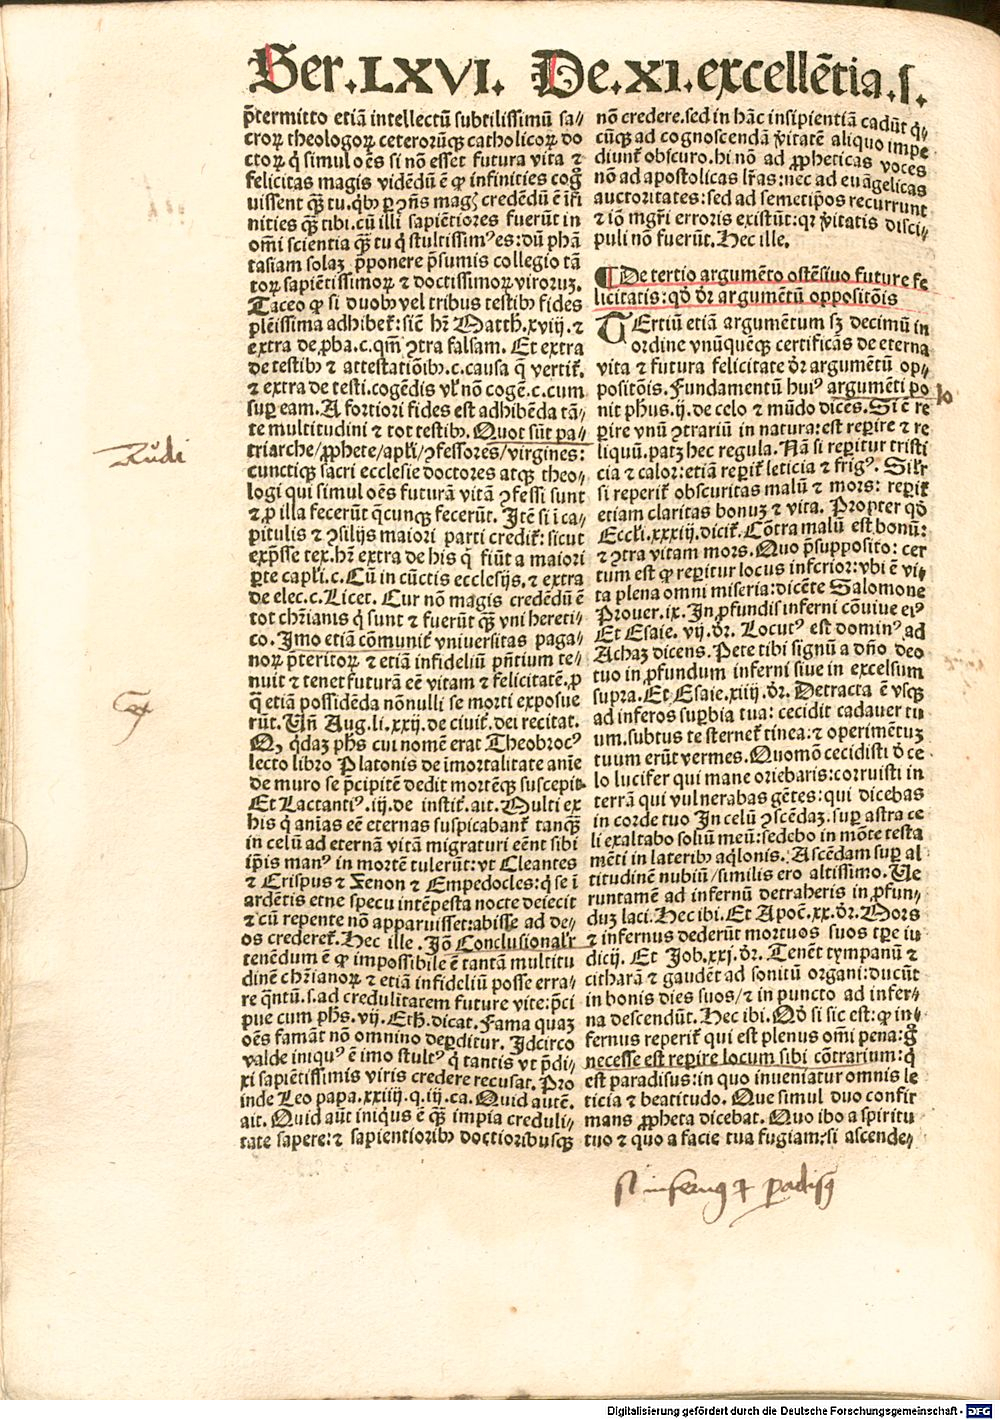 Ser.LXVI. De.XI.excellētia.s.
p̄termitto etiā intellectū subtilissimū sa//
croꝝ theologoꝝ ceterorūꝙ catholicoꝝ do
ctoꝝ q̇ simul oēs si nō esset futura vita ⁊
felicitas magis vidēdū ē ꝙ infinities coḡ
uissent qꝫ̄ tu. qībꝰ ꝑ ↄ̄ns magꝭ credēdū ē īfi
nities qꝫ̄ tibi. cū illi sapiētiores fuerūt in
om̄i scientia qꝫ̄ tu q̇ stultissimꝰ es: dū phā
tasiam solaꝫ p̄ponere p̄sumis collegio tā
toꝝ sapiētissimoꝝ ⁊ doctissimoꝝ viroruꝫ.
Taceo ꝙ si duobꝰ vel tribus testibꝰ fides
plēissima adhibet᷑: sic̄ hr̄ Matth.xviij. ⁊
extra de ꝓba.c.qm̄ ↄtra falsam. Et extra
de testibꝰ ⁊ attestatiōibꝰ.c.causa q̄ vertit᷑.
⁊ extra de testi.cogēdis vl᷑ nō cogē.c.cum
suꝑ eam. A fortiori fides est adhibēda tā//
te multitudini ⁊ tot testibꝰ. Quot sūt pa//
triarche/ꝓphete/apl᷑i/ↄfessores/virgines:
cunctiqꝫ sacri ecclesie doctores atqꝫ theo//
logi qui simul oēs futurā vitā ↄfessi sunt
⁊ ꝓ illa fecerūt q̄cunqꝫ fecerūt. Itē si ī ca//
pitulis ⁊ ↄsilijs maiori parti credit᷑: sicut
exp̄sse tex. hr̄ extra de his q̄ fiūt a maiori
ꝑte capl᷑i.c. Cū in cūctis ecclesijs. ⁊ extra
de elec.c. Licet. Cur nō magis credēdū ē
tot chr̄ianis q̇ sunt ⁊ fuerūt qꝫ̄ vni hereti//
co. Imo etiā cōmunit᷑ vniuersitas paga//
noꝝ p̄teritoꝝ ⁊ etiā infideliū pn̄tium te//
nuit ⁊ tenet futurā eē vitam ⁊ felicitatē. ꝓ
q̄ etiā possidēda nōnulli se morti exposue
rūt. Vn̄ Aug.li.xxij.de ciuit᷑. dei recitat.
Qꝫ q̇daꝫ phs̄ cui nomē erat Theobrocꝰ
lecto libro Platonis de īmortalitate anīe
de muro se p̄cipitē dedit mortēqꝫ suscepit.
Et Lactantiꝰ.iij.de instit᷑.ait. Multi ex
his q̇ anīas eē eternas suspicabant᷑ tanqꝫ̄
in celū ad eternā vitā migraturi eēnt sibi
ip̄is manꝰ in mortē tulerūt: vt Cleantes
⁊ Crispus ⁊ Xenon ⁊ Empedocles: q̇ se ī
ardētis etne specu intēpesta nocte deiecit
⁊ cū repente nō apparuisset: abisse ad de//
os crederet᷑. Hec ille. Iō Conclusional᷑r
tenēdum ē ꝙ impossibile ē tantā multitu
dinē chr̄ianoꝝ ⁊ etiā infideliū posse erra//
re q̄ntū.s.ad credulitatem future vite: p̄ci
pue cum phs̄.vij.Eth̄.dicat. Fama quaꝫ
oēs famāt nō omnino deꝑditur. Idcirco
valde iniquꝰ ē imo stultꝰ q̇ tantis vt p̄di//
xi sapiētissimis viris credere recusat. Pro
inde Leo papa.xxiiij.q.iij.ca. Quid autē.
ait. Quid aūt iniqꝰus ē qꝫ̄ impia creduli//
tate sapere: ⁊ sapientioribꝰ doctioribusqꝫ
nō credere. sed in hāc insipientiā cadūt q̇//
cūqꝫ ad cognoscendā v̄itatē aliquo impe
diunt᷑ obscuro. hi nō ad ꝓpheticas voces
nō ad apostolicas lr̄as: nec ad euāgelicas
auctoritates: sed ad semetip̄os recurrunt
⁊ iō mgr̄i erroris existūt: qꝛ v̄itatis disci//
puli nō fuerūt. Hec ille.
¶De tertio argumēto ostēsiuo future fe
licitatis: qd̄ dr̄ argumētū oppositōis
TErtiū etiā argumētum sꝫ decimū in
ordine vnūquēqꝫ certificās de eterna
vita ⁊ futura felicitate dr̄ argumētū op//
positōis. Fundamentū huiꝰ argumēti po
nit phūs.ij.de celo ⁊ mūdo dicēs. Si ē re
ꝑire vnū ↄtrariū in natura: est reꝑire ⁊ re
liquū. patꝫ hec regula. Nā si reꝑitur tristi
cia ⁊ calor: etiam reꝑit᷑ leticia ⁊ frigꝰ. Sil᷑r
si reperit᷑ obscuritas malū ⁊ mors: reꝑit᷑
etiam claritas bonuꝫ ⁊ vita. Propter qd̄
Eccl᷑i.xxxiij.dicit᷑. Cōtra malū est bonū:
⁊ ↄtra vitam mors. Quo p̄supposito: cer
tum est ꝙ reꝑitur locus inferior: vbi ē vi//
ta plena omni miseria: dicēte Salomone
Prouer.ix. In ꝓfundis inferni cōuiue eiꝰ
Et Esaie. vij.dr̄. Locutꝰ est dominꝰ ad
Achaꝫ dicens. Pete tibi signū a dn̄o deo
tuo in ꝓfundum inferni siue in excelsum
supra. Et Esaie.xiiij.dr̄. Detracta ē vsqꝫ
ad inferos suꝑbia tua: cecidit cadauer tu
um. subtus te sternet᷑ tinea: ⁊ operimētuꝫ
tuum erūt vermes. Quomō cecidisti d̄ ce
lo lucifer qui mane oriebaris: corruisti in
terrā qui vulnerabas gētes: qui dicebas
in corde tuo In celū ↄscēdaꝫ. suꝑ astra ce
li exaltabo soliū meū: sedebo in mōte testa
mēti in lateribꝰ aq̇lonis. Ascēdam suꝑ al
titudinē nubiū/similis ero altissimo. Ve
runtamē ad infernū detraheris in ꝓfun//
duꝫ laci. Hec ibi. Et Apoc̄.xx.dr̄. Mors
⁊ infernus dederūt mortuos suos tꝑe iu
dicij. Et Job.xxj.dr̄. Tenēt tympanū ⁊
citharā ⁊ gaudēt ad sonitū organi: ducūt
in bonis dies suos/⁊ in puncto ad infer//
na descendūt. Hec ibi. Qd̄ si sic est: ꝙ in//
fernus reperit᷑ qui est plenus om̄i pena: g̊
necesse est reꝑire locum sibi cōtrarium: q̇
est paradisus: in quo inueniatur omnis le
ticia ⁊ beatitudo. Que simul duo confir
mans ꝓpheta dicebat. Quo ibo a spiritu
tuo ⁊ quo a facie tua fugiam: si ascende//
si infernus ⁊ padisꝰ
Digitalisierung gefördert durch die Deutsche Forschungsgemeinschaft - DFG